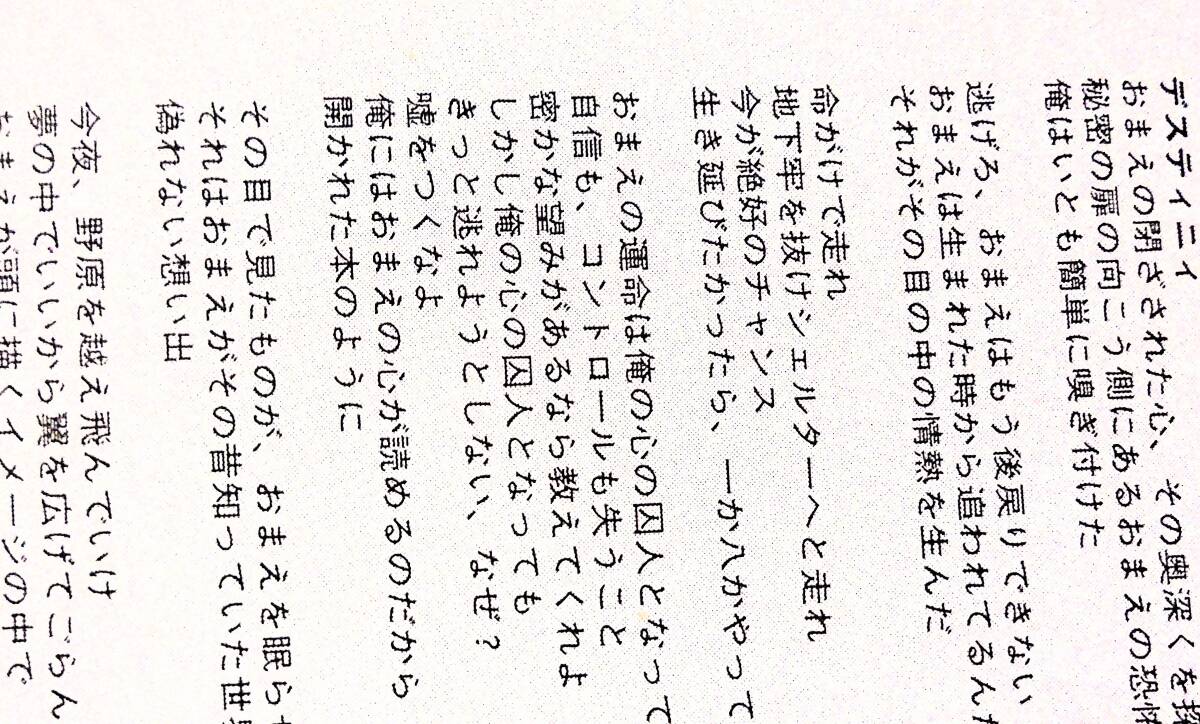 デスティニィ
おまえの閉ざされた心、その奥深くを探
秘密の扉の向こう側にあるおまえの恐怖
俺はいとも簡単に嗅ぎ付けた
逃げろ、おまえはもう後戻りできない
おまえは生まれた時から追われてるんだ
それがその目の中の情熱を生んだ
命がけで走れ
地下牢を抜けシェルターへと走れ
今が絶好のチャンス
生き延びたかったら、一か八かやって
おまえの運命は俺の心の囚人となって
自信も、コントロールも失うこと
密かな望みがあるなら教えてくれよ
しかし俺の心の囚人となっても
きっと逃れようとしない、なぜ？
嘘をつくなよ
俺にはおまえの心が読めるのだから
開かれた本のように
その目で見たものが、おまえを眠ら
それはおまえがその昔知っていた世
偽れない想い出
今夜、野原を越え飛んでいけ
夢の中でいいから翼を広げてごらん
おまえが頭に描くイメージの中で